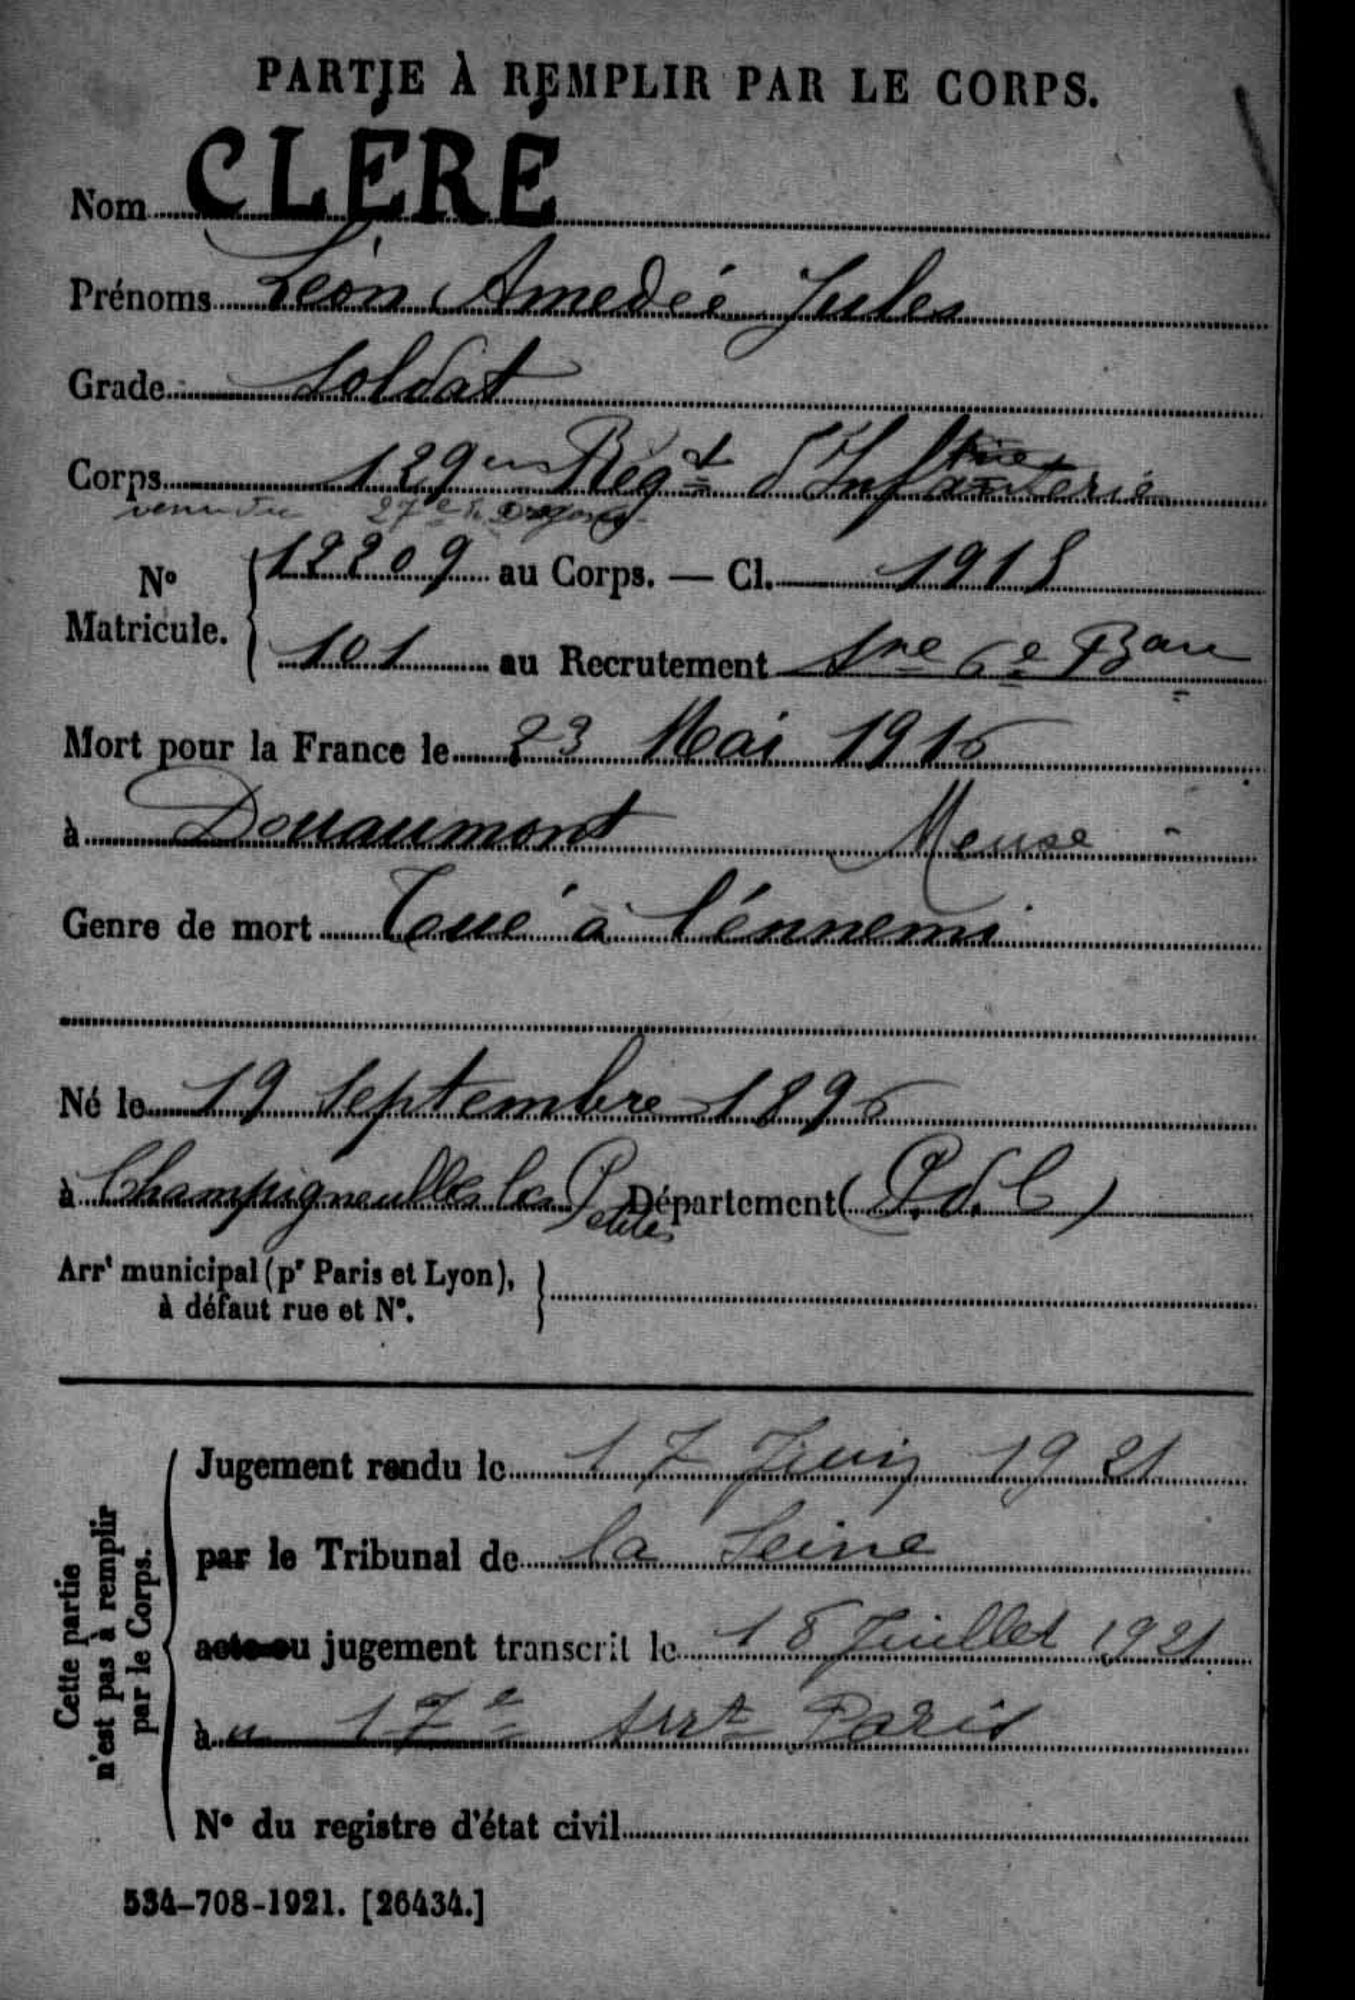 PARTIE À REMPLIR PAR LE CORPS.
Nom CLÉRÉ
Prénoms Léon Amedée Jules
Grade Soldat
Corps 129em Régt d'Infanterie
venu du 27e de Dragons
No Matricule. 12209 au Corps. — Cl. 1915
101 au Recrutement Sne 6e Bau
Mort pour la France le 23 Mai 1916
à Douaumont Meuse
Genre de mort Tué à l'énnemi
Né le 19 Septembre 1896
à Champigneulles les Petites Département (P.d.C)
Arrt municipal (pr Paris et Lyon),
à défaut rue et No.
Cette partie
n'est pas à remplir
par le Corps.
Jugement rendu le 17 Juin 1921
par le Tribunal de la Seine
acte ou jugement transcrit le 18 Juillet 1921
à u 17e Arrt Paris
No du registre d'état civil
534-708-1921. [26434.]